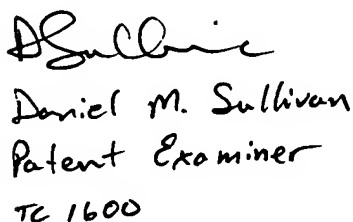 Daniel M. Sullivan
Patent Examiner
TC 1600